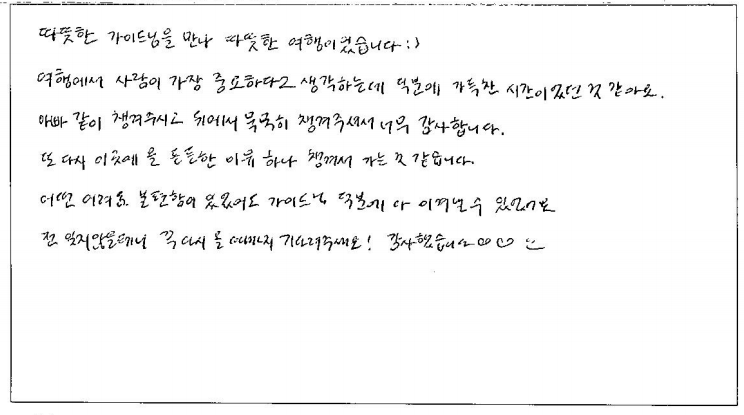 따뜻한 가이드님을 만나 따뜻한 여행이었습니다 :)
여행에서 사람이 가장 중요하다고 생각하는데 덕분에 가득찬 시간이었던 것 같아요.
아빠 같이 챙겨주시고 뒤에서 묵묵히 챙겨주셔서 너무 감사합니다.
또 다시 이곳에 올 든든한 이유 하나 챙겨서 가는 것 같습니다.
어떤 어려움 불편함이 있었어도 가이드님 덕분에 다 이겨낼 수 있었어요
전 잊지않을테니 꼭 다시 올 때까지 기다려주세요! 감사했습니다